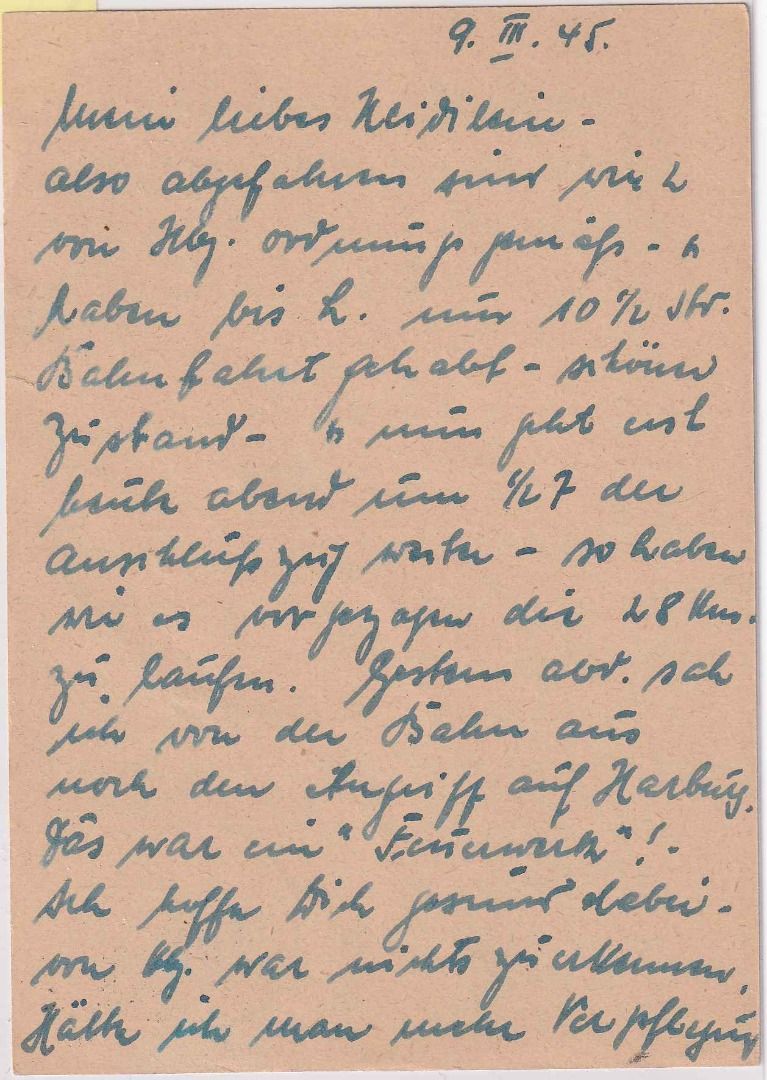 9. III. 45.
Mein liebes Heidilein -
also abgefahren sind wir
von Hbg. ordnungsgemäß - u
haben bis L. nur 10 1/2 Std.
Bahnfahrt gehabt - schöner
Zustand - u nun geht erst
heute abend um 1/2 7 der
Anschlußzug weiter - so haben
wir es vorgezogen die 28 Km.
zu laufen. Gestern abd. sah
ich von der Bahn aus
noch den Angriff auf Harburg.
Das war ein "Feuerwerk"! -
Ich hoffe Dich gesund dabei -
von Hbg. war nichts zu erkennen.
Hätte ich man mehr Verpflegung